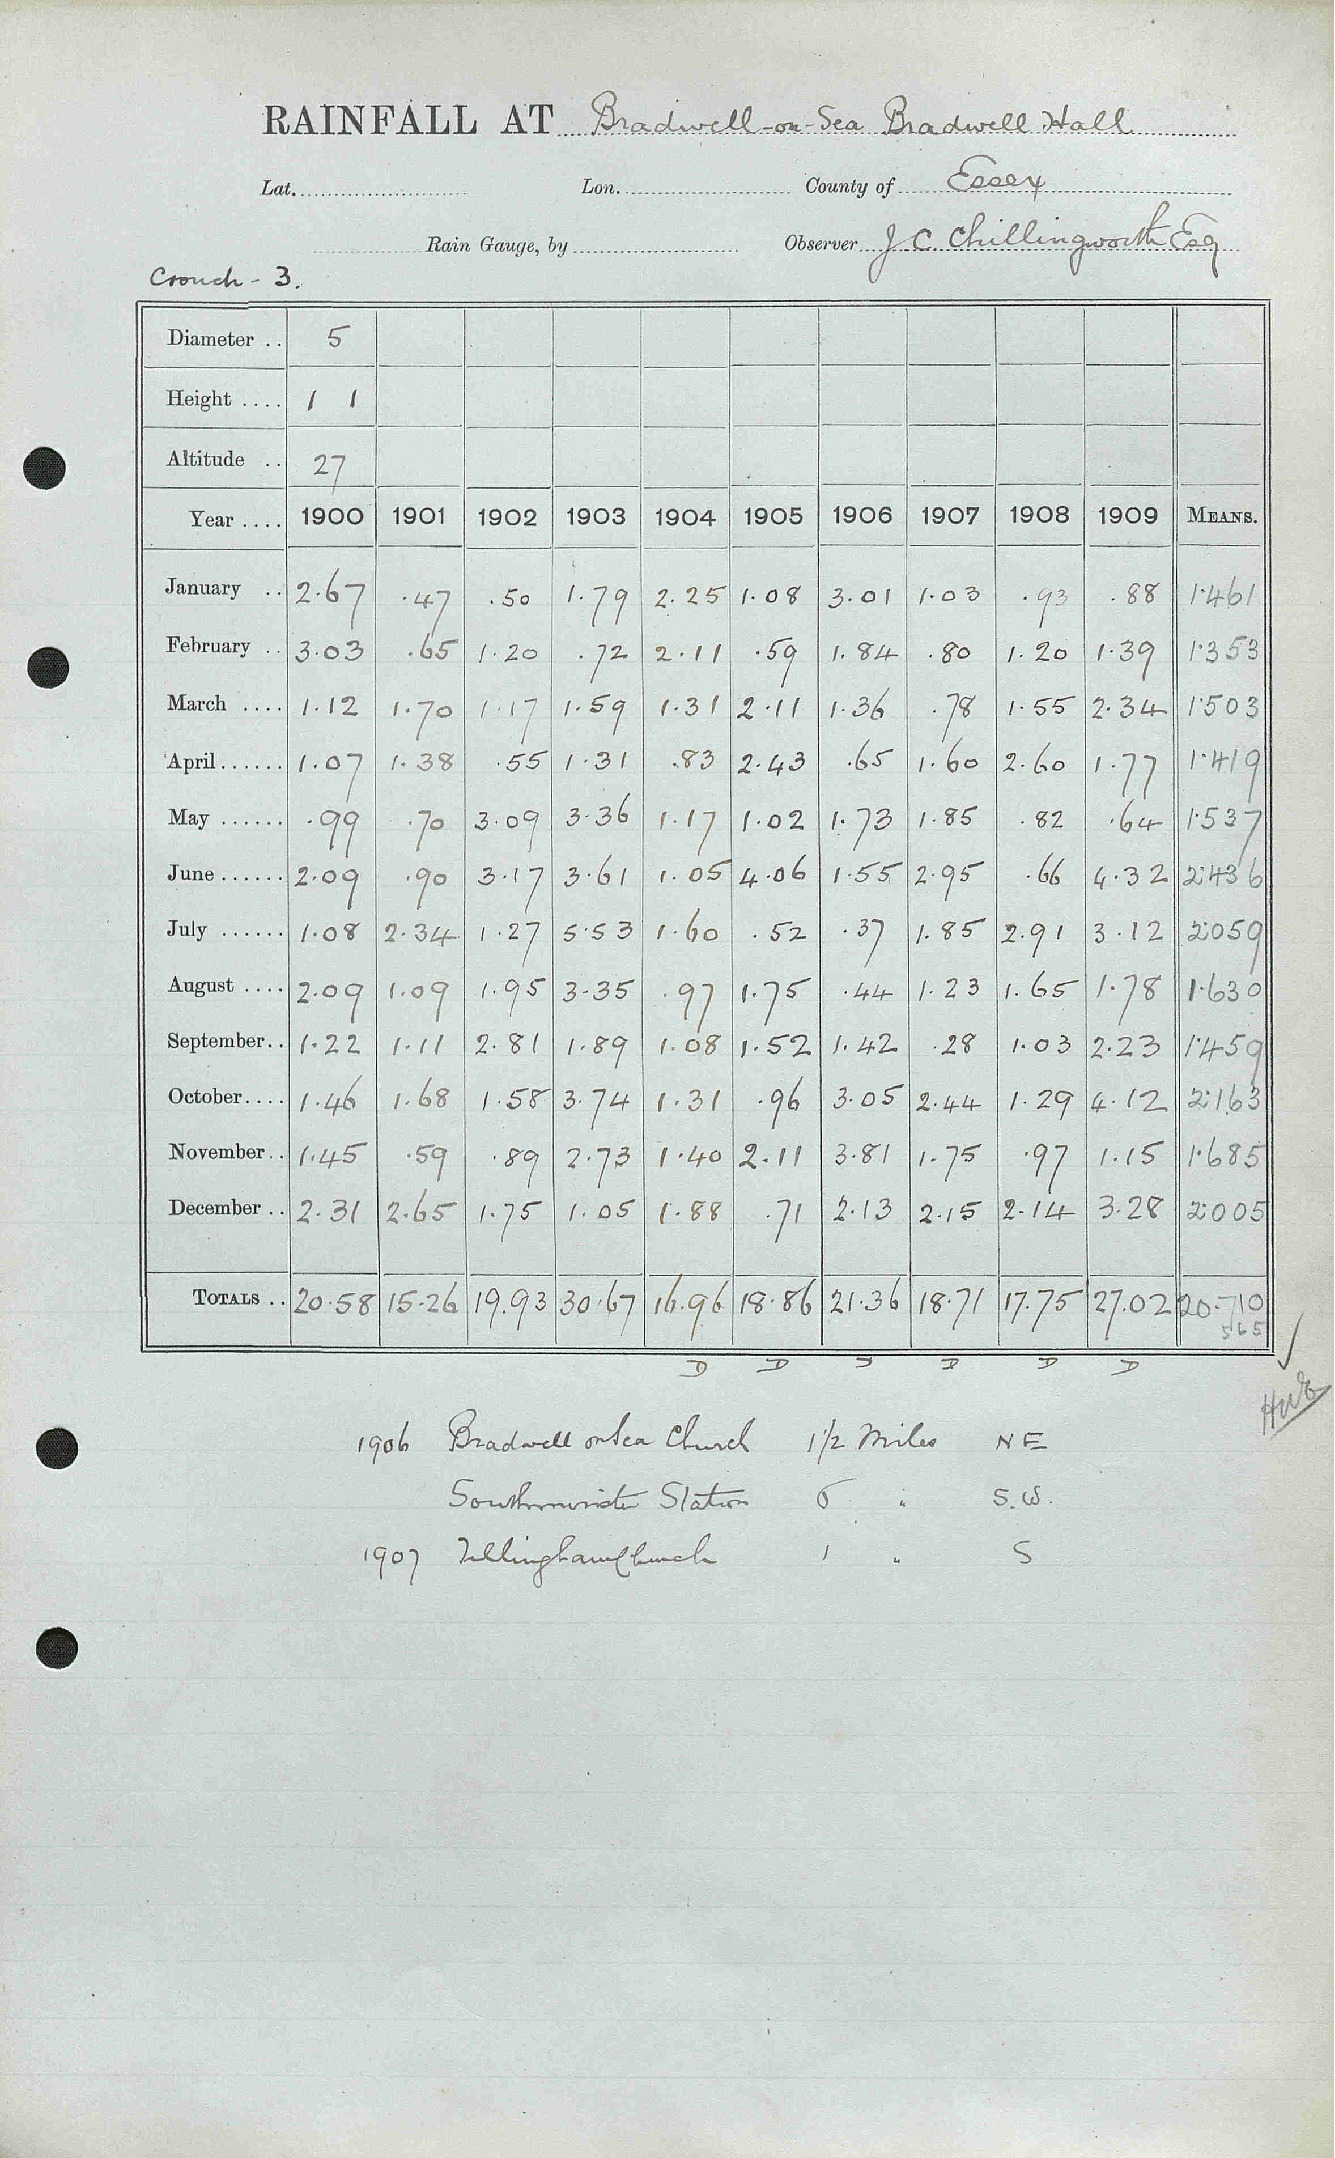 RAINFALL AT Bradwell-on-Sea Bradwell Hall
Lat. Lon. County of Essex
Rain Gauge, by Observer J C Chillingworth Esq
Crouch - 3.
Diameter .. 5
Height .... 1 1
Altitude .. 27
Year .... 1900 1901 1902 1903 1904 1905 1906 1907 1908 1909 MEANS.
January .. 2.67 .47 .50 1.79 2.25 1.08 3.01 1.03 .93 .88 1.461
February .. 3.03 .65 1.20 .72 2.11 .59 1.84 .80 1.20 1.39 1.353
March .... 1.12 1.70 1.17 1.59 1.31 2.11 1.36 .78 1.55 2.34 1.503
April...... 1.07 1.38 .55 1.31 .83 2.43 .65 1.60 2.60 1.77 1.419
May ...... .99 .70 3.09 3.36 1.17 1.02 1.73 1.85 .82 .64 1.537
June...... 2.09 .90 3.17 3.61 1.05 4.06 1.55 2.95 .66 4.32 2.436
July ...... 1.08 2.34 1.27 5.53 1.60 .52 .37 1.85 2.91 3.12 2.059
August .... 2.09 1.09 1.95 3.35 .97 1.75 .44 1.23 1.65 1.78 1.630
September.. 1.22 1.11 2.81 1.89 1.08 1.52 1.42 .28 1.03 2.23 1.459
October.... 1.46 1.68 1.58 3.74 1.31 .96 3.05 2.44 1.29 4.12 2.163
November.. 1.45 .59 .89 2.73 1.40 2.11 3.81 1.75 .97 1.15 1.685
December .. 2.31 2.65 1.75 1.05 1.88 .71 2.13 2.15 2.14 3.28 2.005
TOTALS .. 20.58 15.26 19.93 30.67 16.96 18.86 21.36 18.71 17.75 27.02 20.710
565
D D D D D
1906 Bradwell on Sea Church 1½ Miles NE
Southminster Station 6 " S.W.
1907 Tillingham Church 1 " S